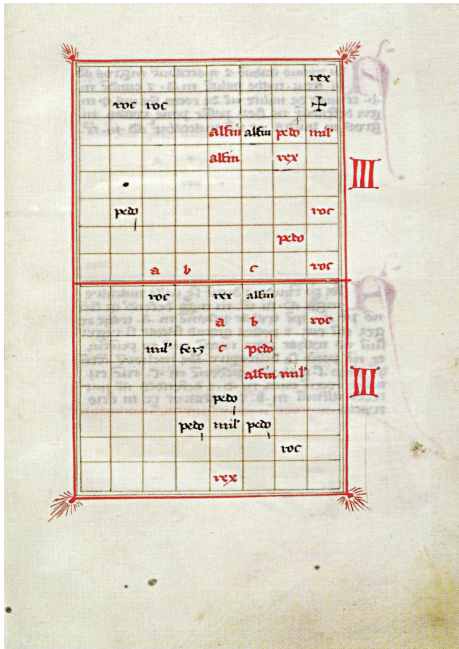 rex
roc roc
alfin alfin pedo mil'
alfin rex
III
pedo roc
pedo
a b c roc
roc rex alfin
a b roc
mil' ferz c pedo
alfin mil'
III
pedo
pedo mil' pedo
roc
rex